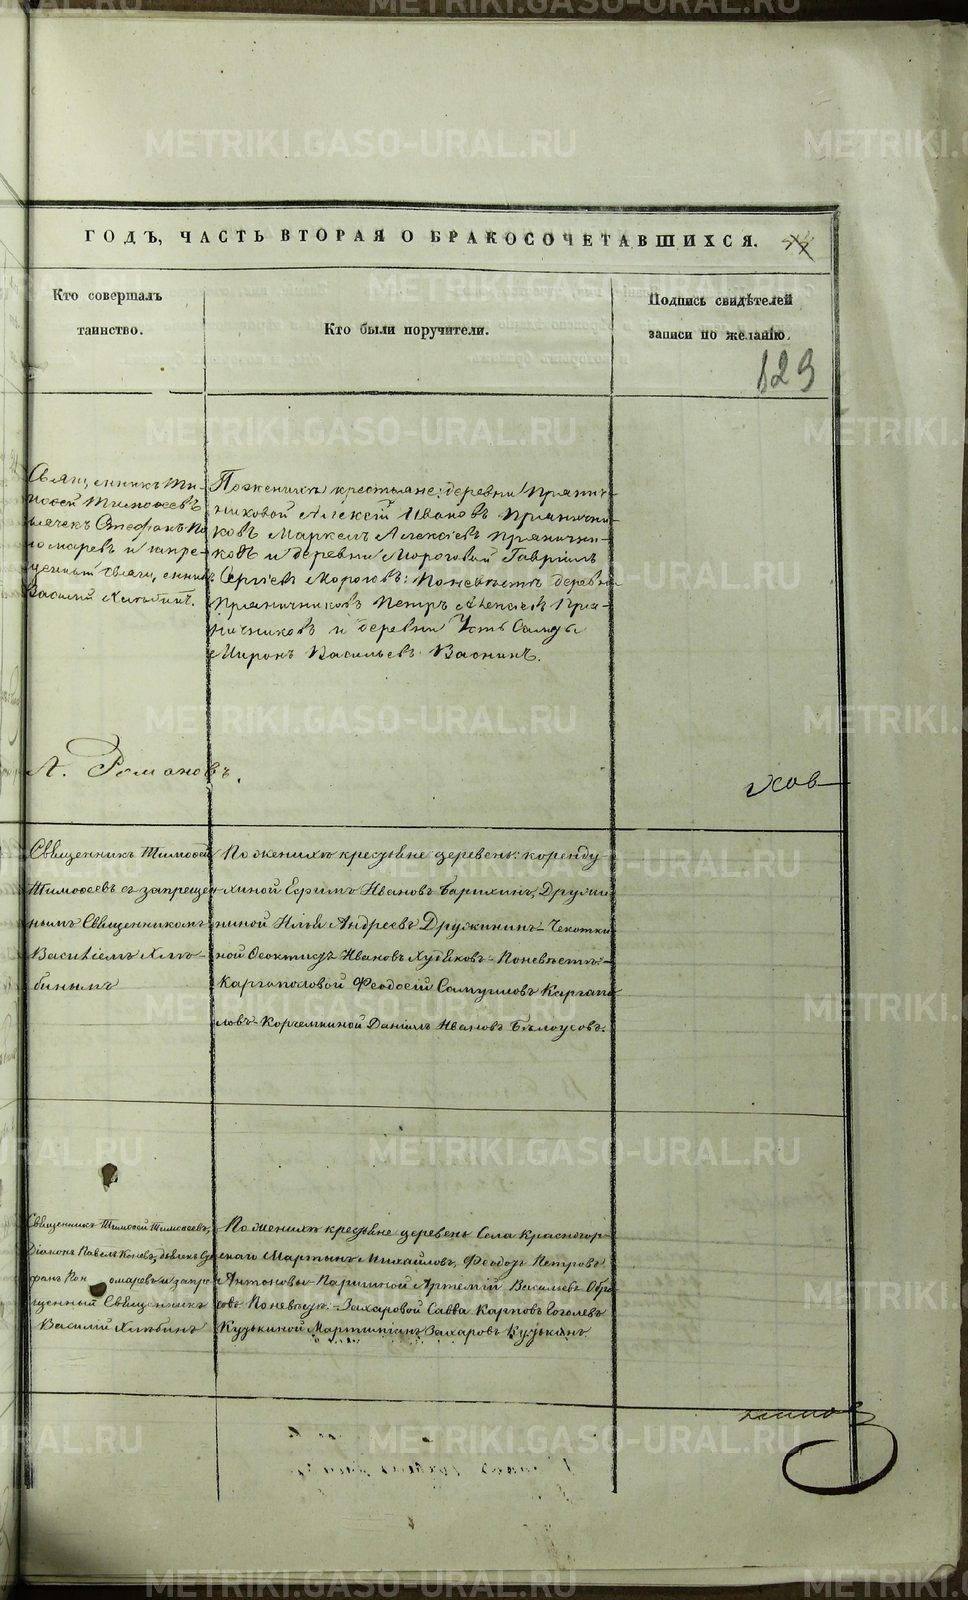 ГОДЪ, ЧАСТЬ ВТОРАЯ О БРАКОСОЧЕТАВШИХСЯ.
Кто совершалъ
таинство.
Кто были поручители.
Подпись свидѣтелей
записи по желанію.
123
Священникъ Ти-
моѳей Тимоѳеевъ
дьячекъ Стефанъ По
номаревъ и запре-
щенный священникъ
Василій Хлѣбинъ.
По женихѣ крестьяне: деревни Прянич-
никовой Алексій Ивановъ Пряничн-
ковъ Маркелъ Алексіевъ Пряничн-
ковъ и деревни Мороговой Гавріилъ
Сергіевъ Мороговъ: По невѣстѣ деревни
Пряничниковъ Петръ Алексіевъ Пря-
ничниковъ и деревни Усть Салды
Миронъ Васильевъ Васнинъ.
А. Романовъ.
ховъ
Священникъ Тимоѳей
Тимоѳеевъ съ запрещен-
нымъ Священникомъ
Василіемъ Хлѣ-
бинымъ
По женихѣ крестьяне деревень:
Ефимъ Ивановъ Барихинъ, Дружи
ниной Илья Андреевъ Дружининъ
ной Ѳеоктистъ Ивановъ Худяковъ - По невѣстѣ -
Каргополовой Феодосій Самуиловъ Каргапо
ловъ - Корчемкиной Даніилъ Ивановъ Бѣлоусовъ.
Священникъ Тимоѳей Тимоѳеевъ,
Діаконъ Павелъ Коневъ, дьячекъ Сте
фанъ Пономаревъ и запре
щенный Священникъ
Василій Хлѣбинъ
По женихѣ крестьяне деревень Села Красногор
скаго Мартынъ Михайловъ, Феодоръ Петровъ
Антоновы - Паришной Артемій Васильевъ
По невѣстѣ: - Захаровой Савва Карповъ Гоголевъ
Кузькиной Мартиніанъ Захаровъ Кузькинъ
METRIKI.GASO-URAL.RU